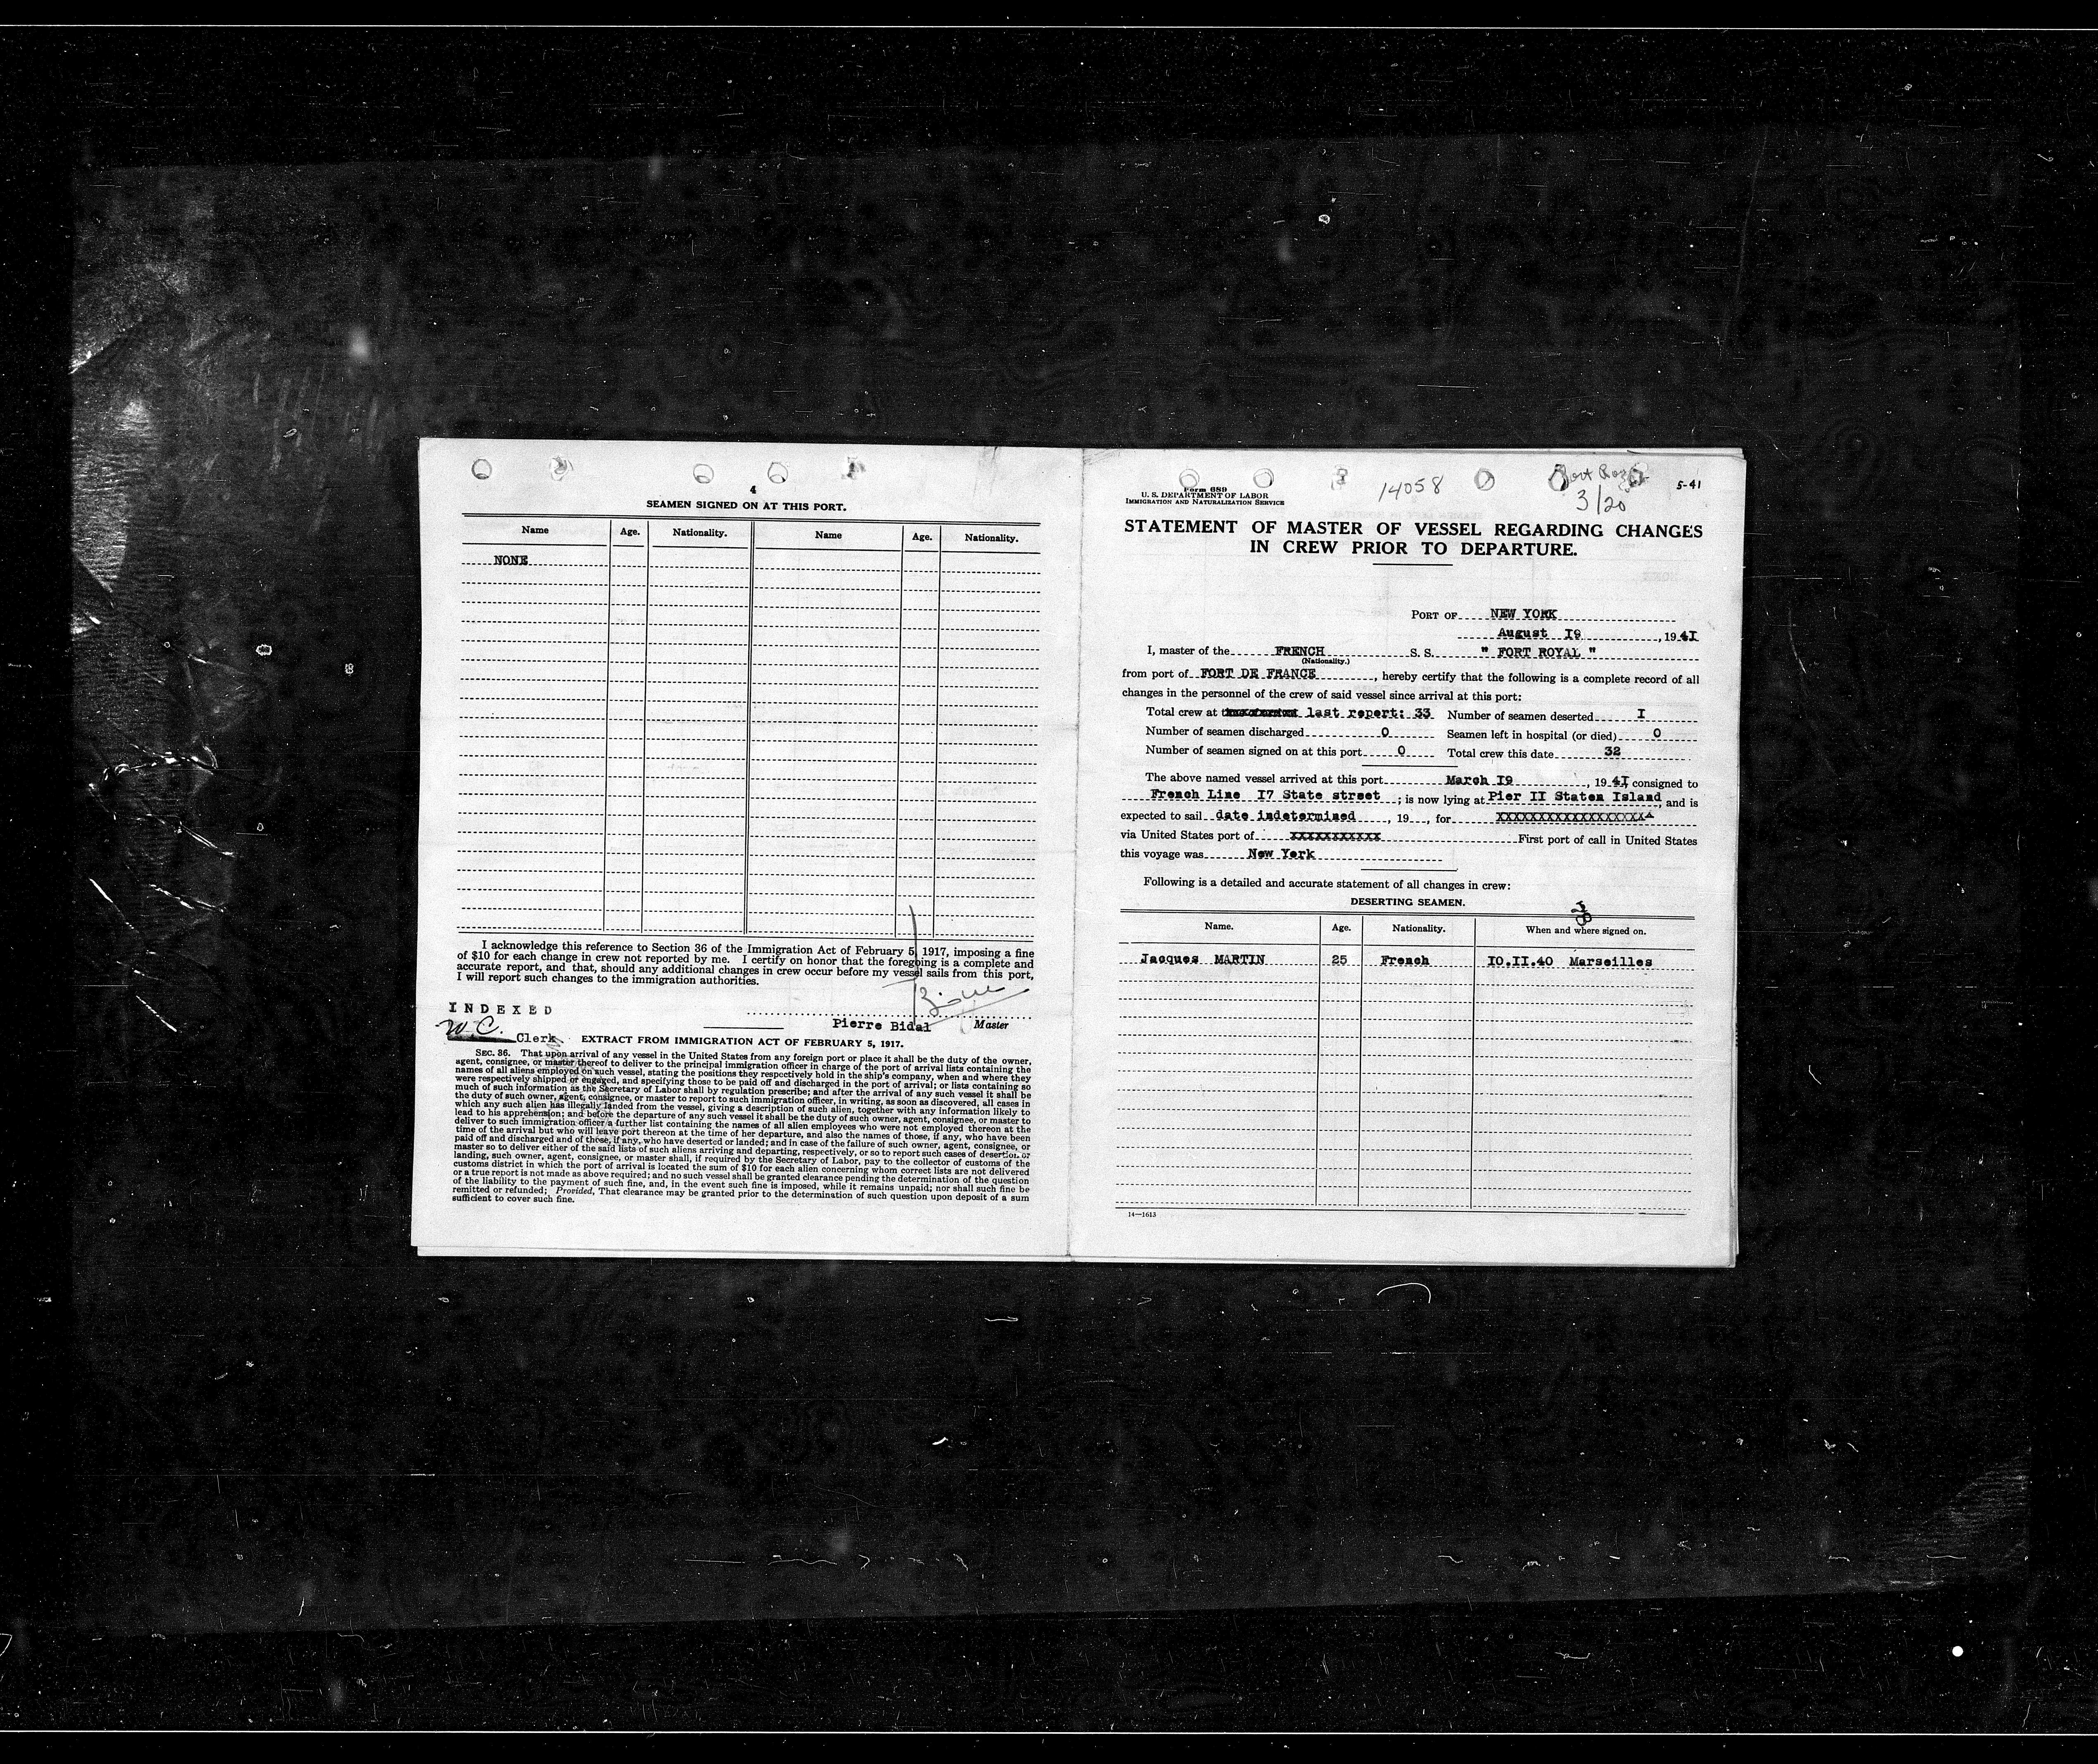 4
SEAMEN SIGNED ON AT THIS PORT.
Name Age. Nationality. Name Age. Nationality.
NONE
I acknowledge this reference to Section 36 of the Immigration Act of February 5, 1917, imposing a fine
of $10 for each change in crew not reported by me. I certify on honor that the foregoing is a complete and
accurate report, and that, should any additional changes in crew occur before my vessel sails from this port,
I will report such changes to the immigration authorities.
INDEXED
Pierre Bidal Master
W.C. Clerk
EXTRACT FROM IMMIGRATION ACT OF FEBRUARY 5, 1917.
SEC. 36. That upon arrival of any vessel in the United States from any foreign port or place it shall be the duty of the owner,
agent, consignee, or master thereof to deliver to the principal immigration officer in charge of the port of arrival lists containing the
names of all aliens employed on such vessel, stating the positions they respectively hold in the ship's company, when and where they
were respectively shipped or engaged, and specifying those to be paid off and discharged in the port of arrival; or lists containing so
much of such information as the Secretary of Labor shall by regulation prescribe; and after the arrival of any such vessel it shall be
the duty of such owner, agent, consignee, or master to report to such immigration officer, in writing, as soon as discovered, all cases in
which any such alien has illegally landed from the vessel, giving a description of such alien, together with any information likely to
lead to his apprehension; and before the departure of any such vessel it shall be the duty of such owner, agent, consignee, or master to
deliver to such immigration officer a further list containing the names of all alien employees who were not employed thereon at the
time of the arrival but who will leave port thereon at the time of her departure, and also the names of those, if any, who have been
paid off and discharged and of those, if any, who have deserted or landed; and in case of the failure of such owner, agent, consignee, or
master so to deliver either of the said lists of such aliens arriving and departing, respectively, or so to report such cases of desertion or
landing, such owner, agent, consignee, or master shall, if required by the Secretary of Labor, pay to the collector of customs of the
customs district in which the port of arrival is located the sum of $10 for each alien concerning whom correct lists are not delivered
or a true report is not made as above required; and no such vessel shall be granted clearance pending the determination of the question
of the liability to the payment of such fine, and, in the event such fine is imposed, while it remains unpaid; nor shall such fine be
remitted or refunded; Provided, That clearance may be granted prior to the determination of such question upon deposit of a sum
sufficient to cover such fine.
Form 689
U. S. DEPARTMENT OF LABOR
IMMIGRATION AND NATURALIZATION SERVICE
14058
3/20
5-41
STATEMENT OF MASTER OF VESSEL REGARDING CHANGES
IN CREW PRIOR TO DEPARTURE.
PORT OF NEW YORK
August I9, 1941
I, master of the FRENCH S. S. " FORT ROYAL "
(Nationality.)
from port of FORT DE FRANCE, hereby certify that the following is a complete record of all
changes in the personnel of the crew of said vessel since arrival at this port:
Total crew at last report: 33 Number of seamen deserted I
Number of seamen discharged 0 Seamen left in hospital (or died) 0
Number of seamen signed on at this port 0 Total crew this date 32
The above named vessel arrived at this port March I9, 194I consigned to
French Line I7 State street; is now lying at Pier II Staten Island, and is
expected to sail date indetermined, 19, for XXXXXXXXXXXXXXXXXXX
via United States port of XXXXXXXXXXX First port of call in United States
this voyage was New York
Following is a detailed and accurate statement of all changes in crew:
DESERTING SEAMEN.
Name. Age. Nationality. When and where signed on.
Jacques MARTIN 25 French IO.II.40 Marseilles
14—1613